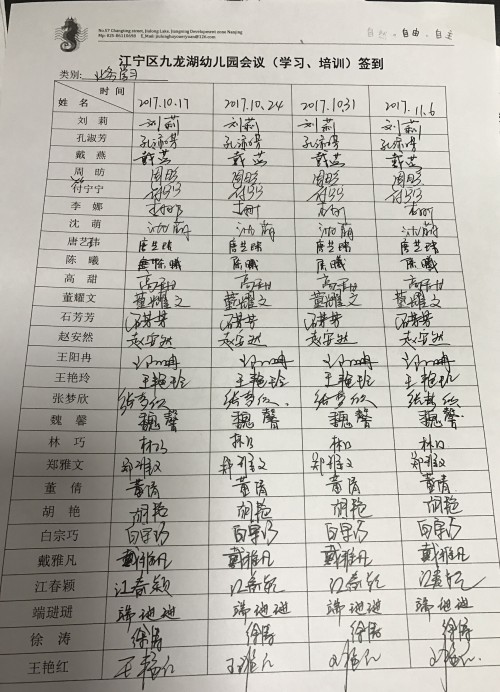 No.57 Changting street, Jiulong Lake, Jiangning Development zone Nanjing
自然 . 自由 . 自主
江宁区九龙湖幼儿园会议（学习、培训）签到
类别: 业务学习
时间
姓名 2017.10.17 2017.10.24 2017.10.31 2017.11.6
刘莉 刘莉 刘莉 刘莉 刘莉
孔淑芳 孔淑芳 孔淑芳 孔淑芳 孔淑芳
戴燕 戴燕 戴燕 戴燕 戴燕
周昉 周昉 周昉 周昉 周昉
付宁宁 付宁宁 付宁宁 付宁宁 付宁宁
李娜 李娜 李娜 李娜 李娜
沈萌 沈萌 沈萌 沈萌 沈萌
唐艺 唐艺 唐艺 唐艺 唐艺
陈曦 陈曦 陈曦 陈曦 陈曦
高甜 高甜 高甜 高甜 高甜
董耀文 董耀文 董耀文 董耀文 董耀文
石芳芳 石芳芳 石芳芳 石芳芳 石芳芳
赵安然 赵安然 赵安然 赵安然 赵安然
王阳冉
王艳玲 王艳玲 王艳玲 王艳玲 王艳玲
张梦欣 张梦欣 张梦欣 张梦欣 张梦欣
魏馨 魏馨 魏馨 魏馨 魏馨
林巧 林巧 林巧 林巧 林巧
郑雅文 郑雅文 郑雅文 郑雅文 郑雅文
董倩 董倩 董倩 董倩 董倩
胡艳 胡艳 胡艳 胡艳 胡艳
白宗巧 白宗巧 白宗巧 白宗巧 白宗巧
戴雅凡 戴雅凡 戴雅凡 戴雅凡 戴雅凡
江春颖 江春颖 江春颖 江春颖 江春颖
端琎琎 端琎琎 端琎琎 端琎琎 端琎琎
徐涛 徐涛 徐涛 徐涛 徐涛
王艳红 王艳红 王艳红 王艳红 王艳红